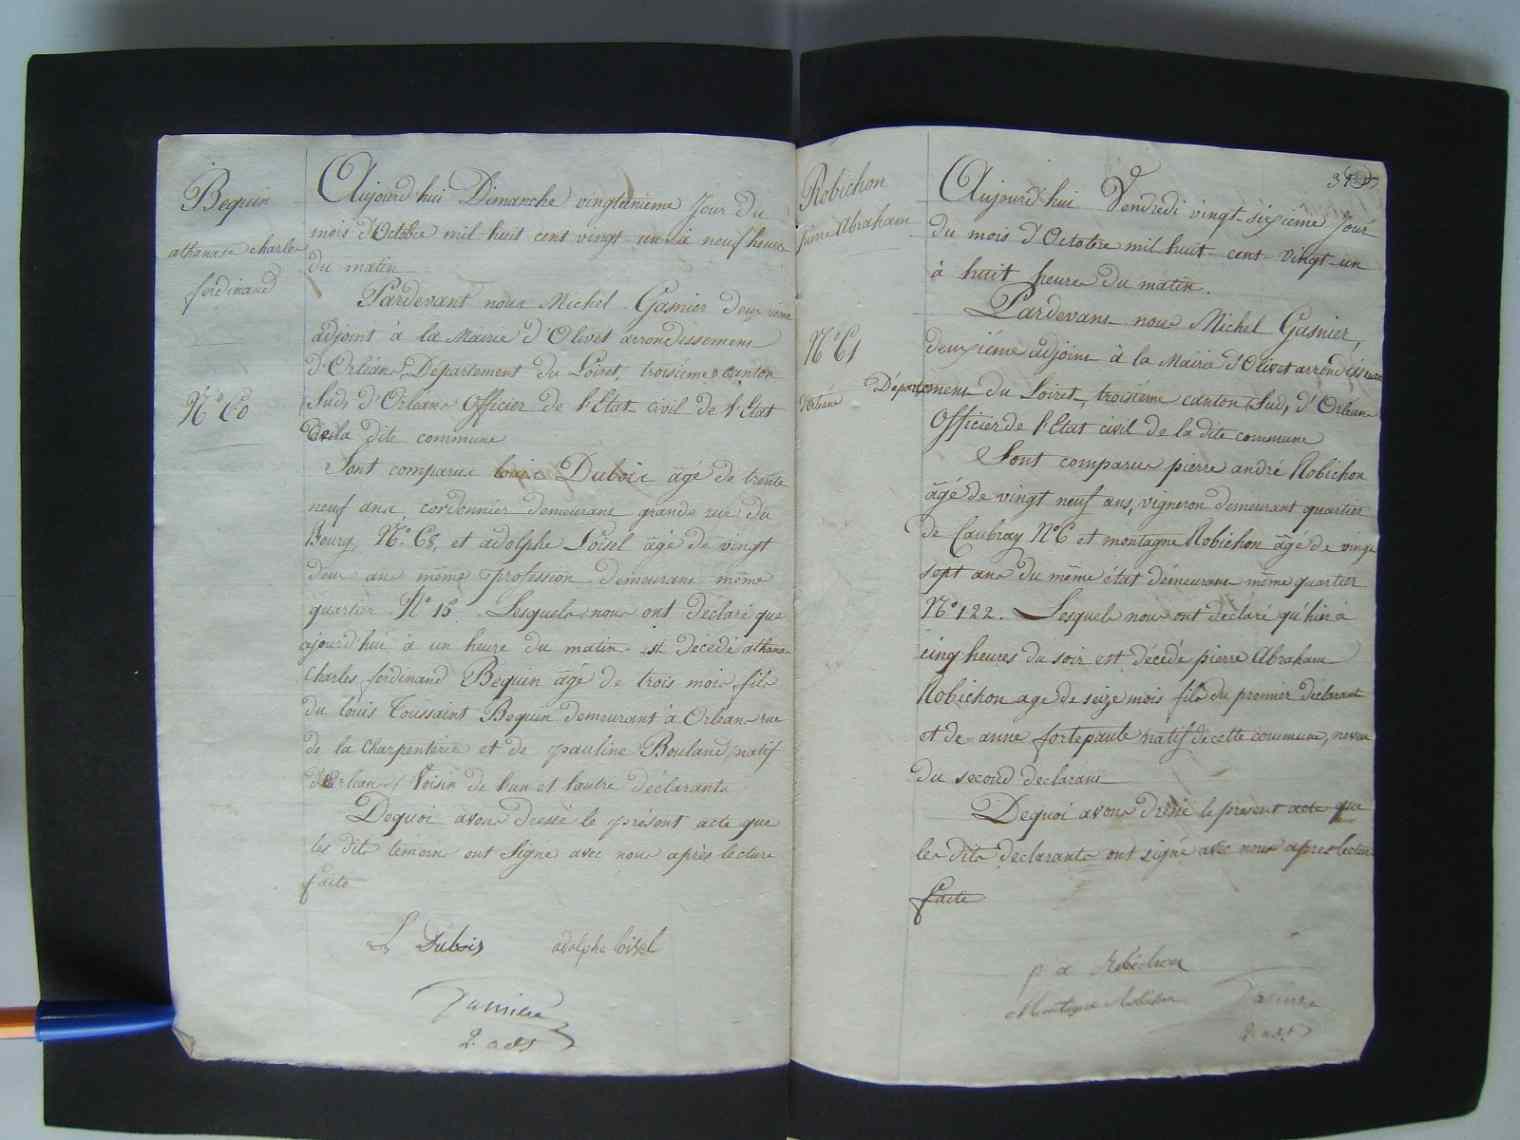 Bequin
athanase charles
ferdinand
N° 60
Aujourd'hui Dimanche vingtunieme Jour du
mois d'Octobre mil huit cent vingt-un à neuf heures
du matin
Pardevant nous Michel Gasnier deuxième
adjoint à la Mairie d'Olivet arrondissement
d'Orléans, Departement du Loiret, troisième canton
Sud, d'Orleans Officier de l'Etat civil de l'Etat
de la dite commune
Sont comparus louis Dubois âgé de trente
neuf ans, cordonnier demeurant grande rue du
Bourg, N° 68, et adolphe Loisel âgé de vingt
deux ans même profession demeurant même
quartier N° 16. Lesquels nous ont déclaré que
ajourd'hui à un heure du matin est décédé athanase
Charles ferdinand Bequin âgé de trois mois fils
du louis Toussaint Bequin demeurant à Orléans rue
de la Charpenterie et de pauline Bouland, natif
d'Orleans, Voisin de l'un et l'autre déclarants
Dequoi avons dressé le présent acte que
les dits témoins ont Signé avec nous après lecture
faite
L Dubois adolphe loisel
Gasnier
2. adj
34
Robichon
pierre Abraham
N° 61
Aujourd'hui Vendredi vingt-sixième Jour
du mois d'Octobre mil huit-cent-vingt-un
à huit heures du matin.
Pardevant nous Michel Gasnier,
deuxième adjoint à la Mairie d'Olivet arrondissement
d'Orléans Département du Loiret, troisième canton Sud, d'Orleans
Officier de l'Etat civil de la dite commune
Sont comparus pierre andré Robichon
âgé de vingt neuf ans, vigneron demeurant quartier
de Caubray N° 6 et montagne Robichon âgé de vingt
sept ans du même état demeurant même quartier
N° 122. Lesquels nous ont déclaré qu'hier à
cinq heures du soir est décédé pierre Abraham
Robichon age de seize mois fils du premier déclarant
et de anne fortepaule natif de cette commune, neveu
du second declarant
Dequoi avons dressé le present acte que
les dits declarants ont signé avec nous apres lecture
faite
p a Robichon
Montagne Robichon Gasnier
2. adj